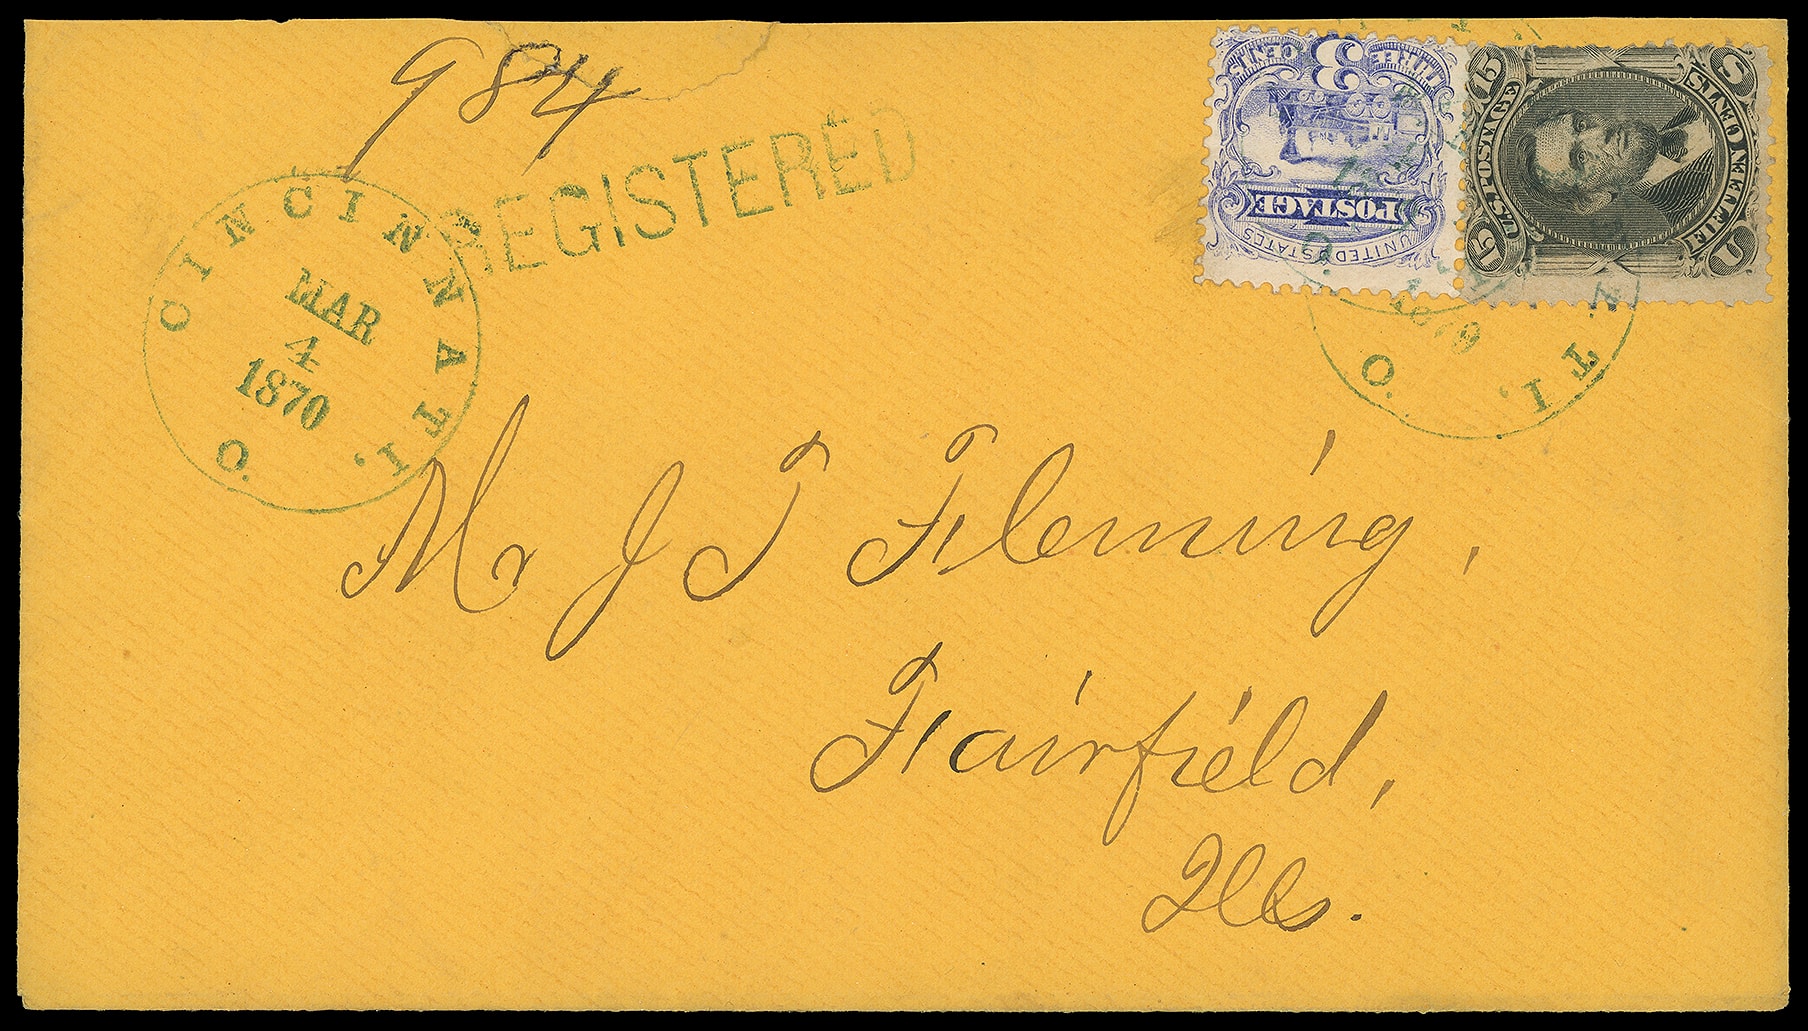 984
REGISTERED
CINCINNATI. O.
MAR
4
1870
3
THREE CENTS
POSTAGE
UNITED STATES
15 U.S. POSTAGE 15
U FIFTEEN CENTS S
TI. O.
1870
Mr J T Fleming,
Fairfield,
Ills.